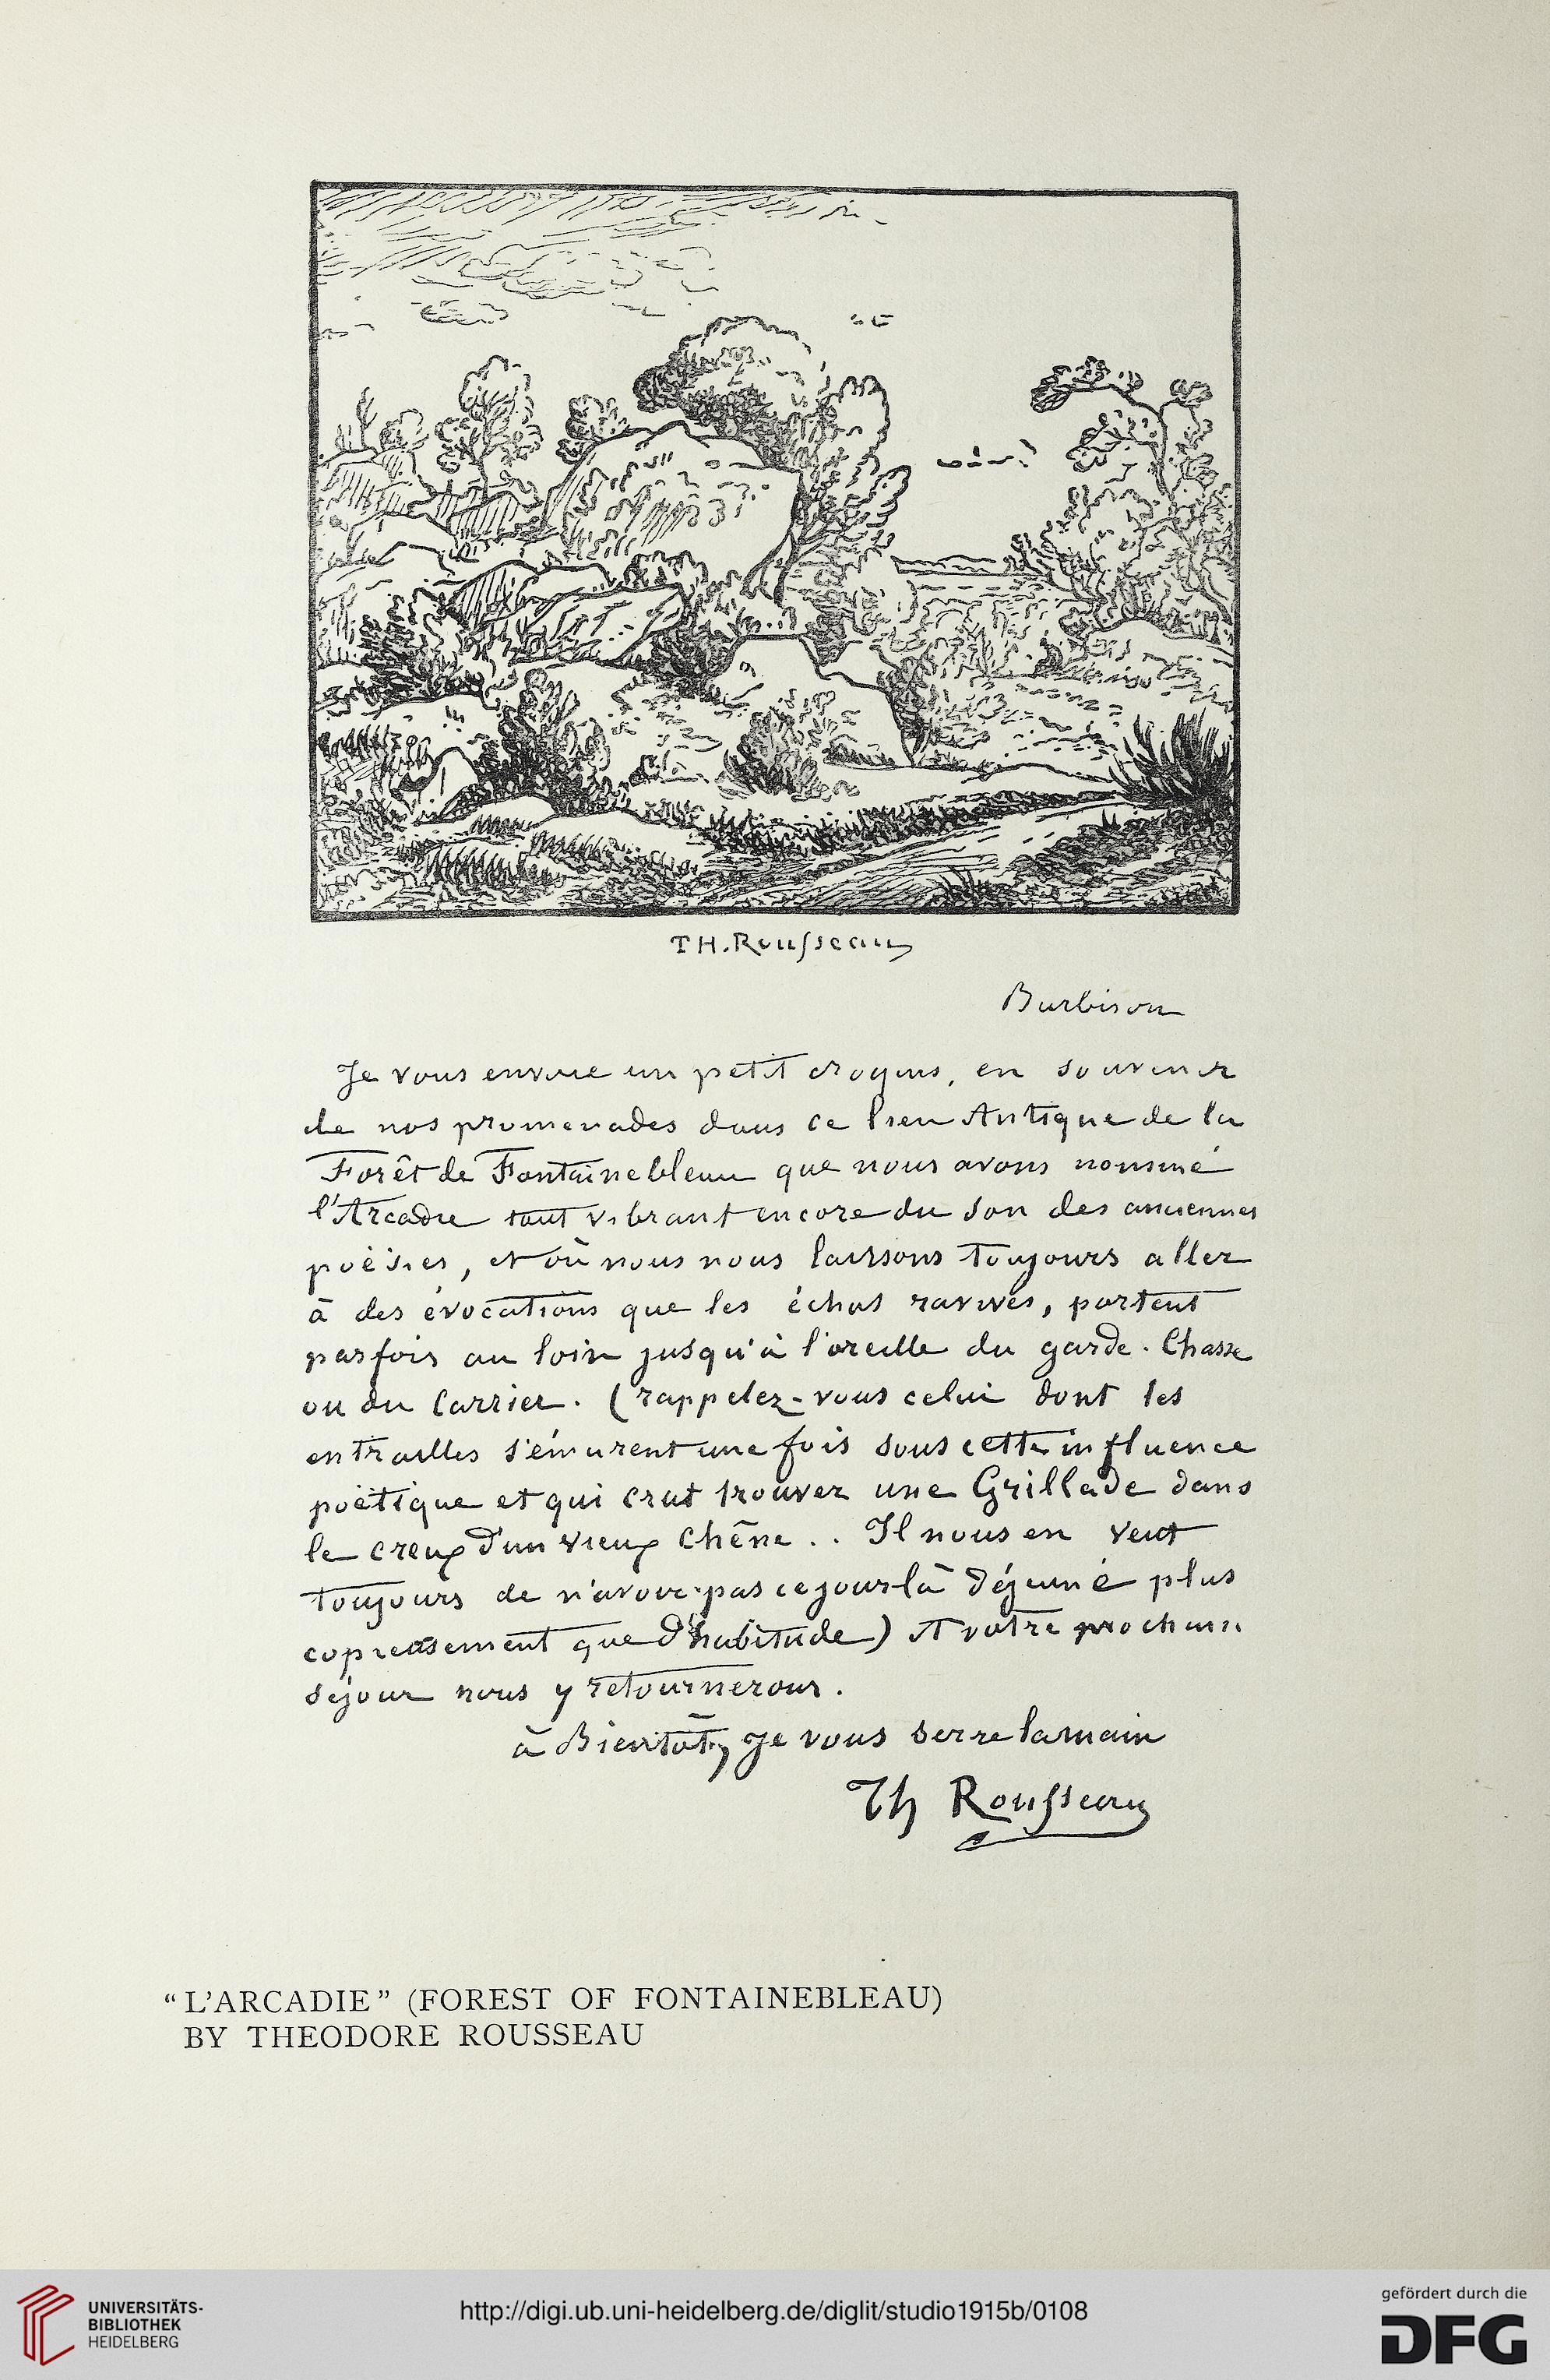 TH. Rousseau
Barbison
Je vous envoie un petit croquis, en souvenir
de nos promenades dans ce lieu Antique de la
Forêt de Fontainebleau que nous avons nommé
l'Arcadie tout vibrant encore du son des anciennes
poësies, et où nous nous laissons toujours aller
à des évocations que les échos ravivés, portent
parfois au loin jusqu'à l'oreille du garde-Chasse
ou du Carrier. (rappelez-vous celui dont les
entrailles s'émurent une fois sous cette influence
poëtique et qui crut trouver une Grillade dans
le creux d'un vieux Chêne.. Il nous en veut
toujours de n'avoir pas ce jour là déjeuné plus
copieusement que d'habitude) A votre prochain
séjour nous y retournerons.
à Bientôt, Je vous serre la main
Th Rousseau
“L'ARCADIE” (FOREST OF FONTAINEBLEAU)
BY THEODORE ROUSSEAU
UNIVERSITÄTS-
BIBLIOTHEK
HEIDELBERG
http://digi.ub.uni-heidelberg.de/diglit/studio1915b/0108
gefördert durch die
DFG